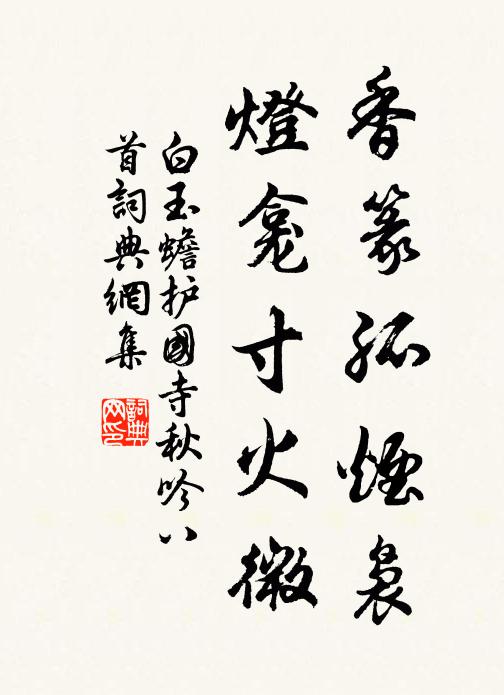 香篆孤煙裊
燈龕寸火微
白玉蟾护國寺秋吟八
首詞典網集
詞典
网印